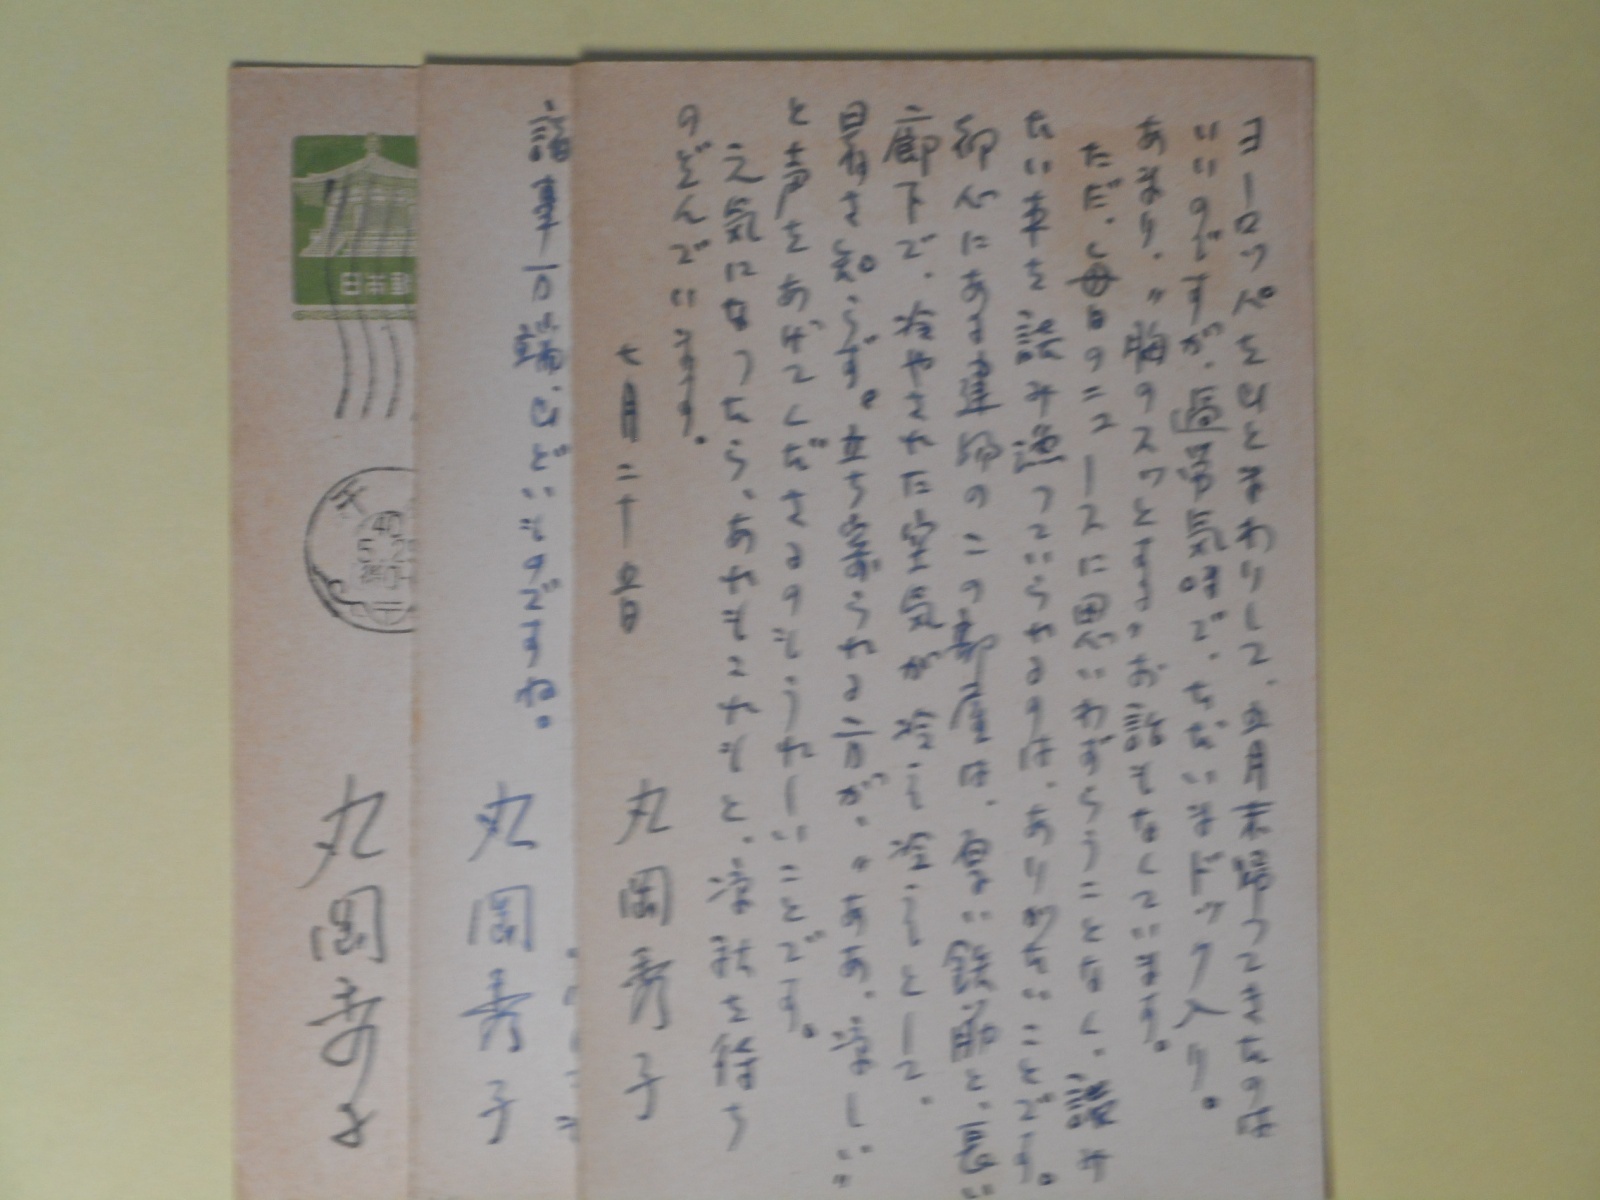 ヨーロッパをひとまわりして、五月末帰ってきたのは
いいのですが、過労気味で、ただいまドック入り。
あまり、〃胸のスッとする〃お話もなくています。
ただ、毎日のニュースに思いわずらうことなく、読み
たい本を読み漁っていられるのは、ありがたいことです。
都心にある建物のこの部屋は、厚い鉄筋と、長い
廊下で、冷やされた空気が冷え冷えとして、
暑さを知らず。立ち寄られる方が、〃ああ、涼しい〃
と声をあげてくださるのもうれしいことです。
元気になったら、あれもこれもと、涼秋を待ち
のぞんでいます。
七月二十五日
丸岡秀子
諸事万端、ひどいものですね。
丸岡秀子
日本郵
丸岡秀子